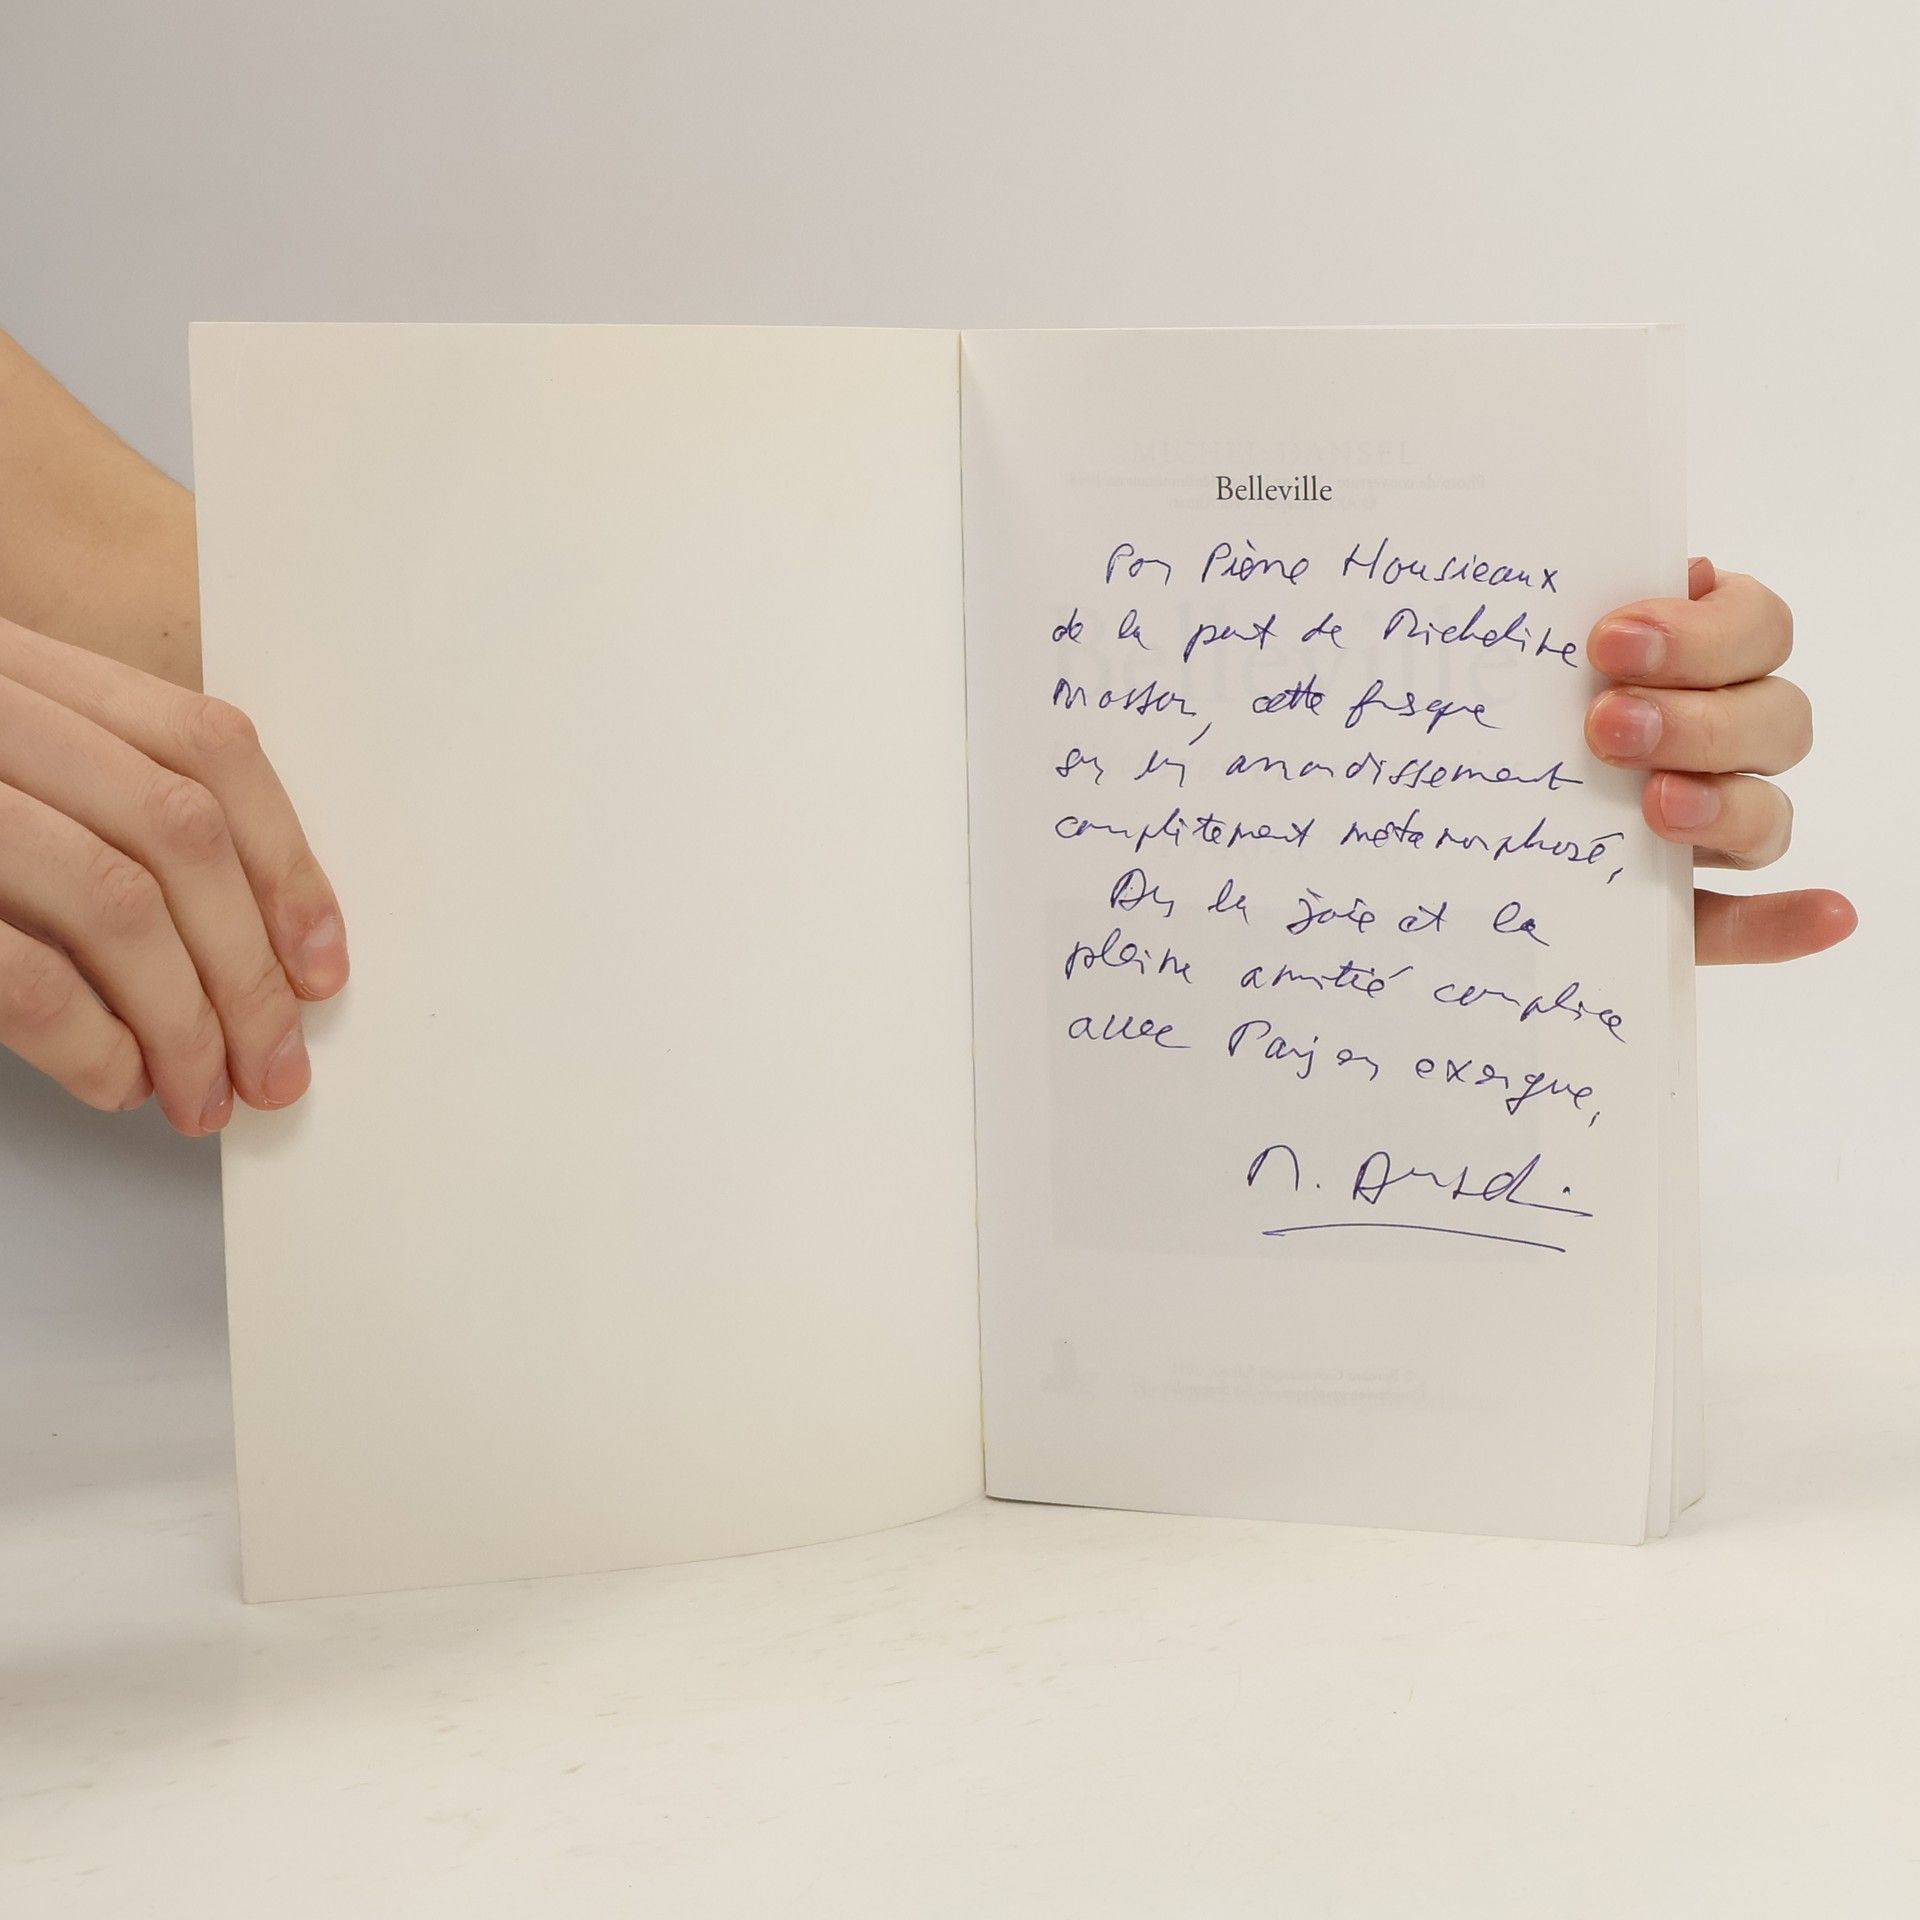 MICHEL DANSEL
Belleville
Pour Pierre Housieaux
de la part de Micheline
Masson, cette fresque
sur un arrondissement
complètement métamorphosé,
Dans la joie et la
pleine amitié complice
avec Paris en exergue,
M. Dansel